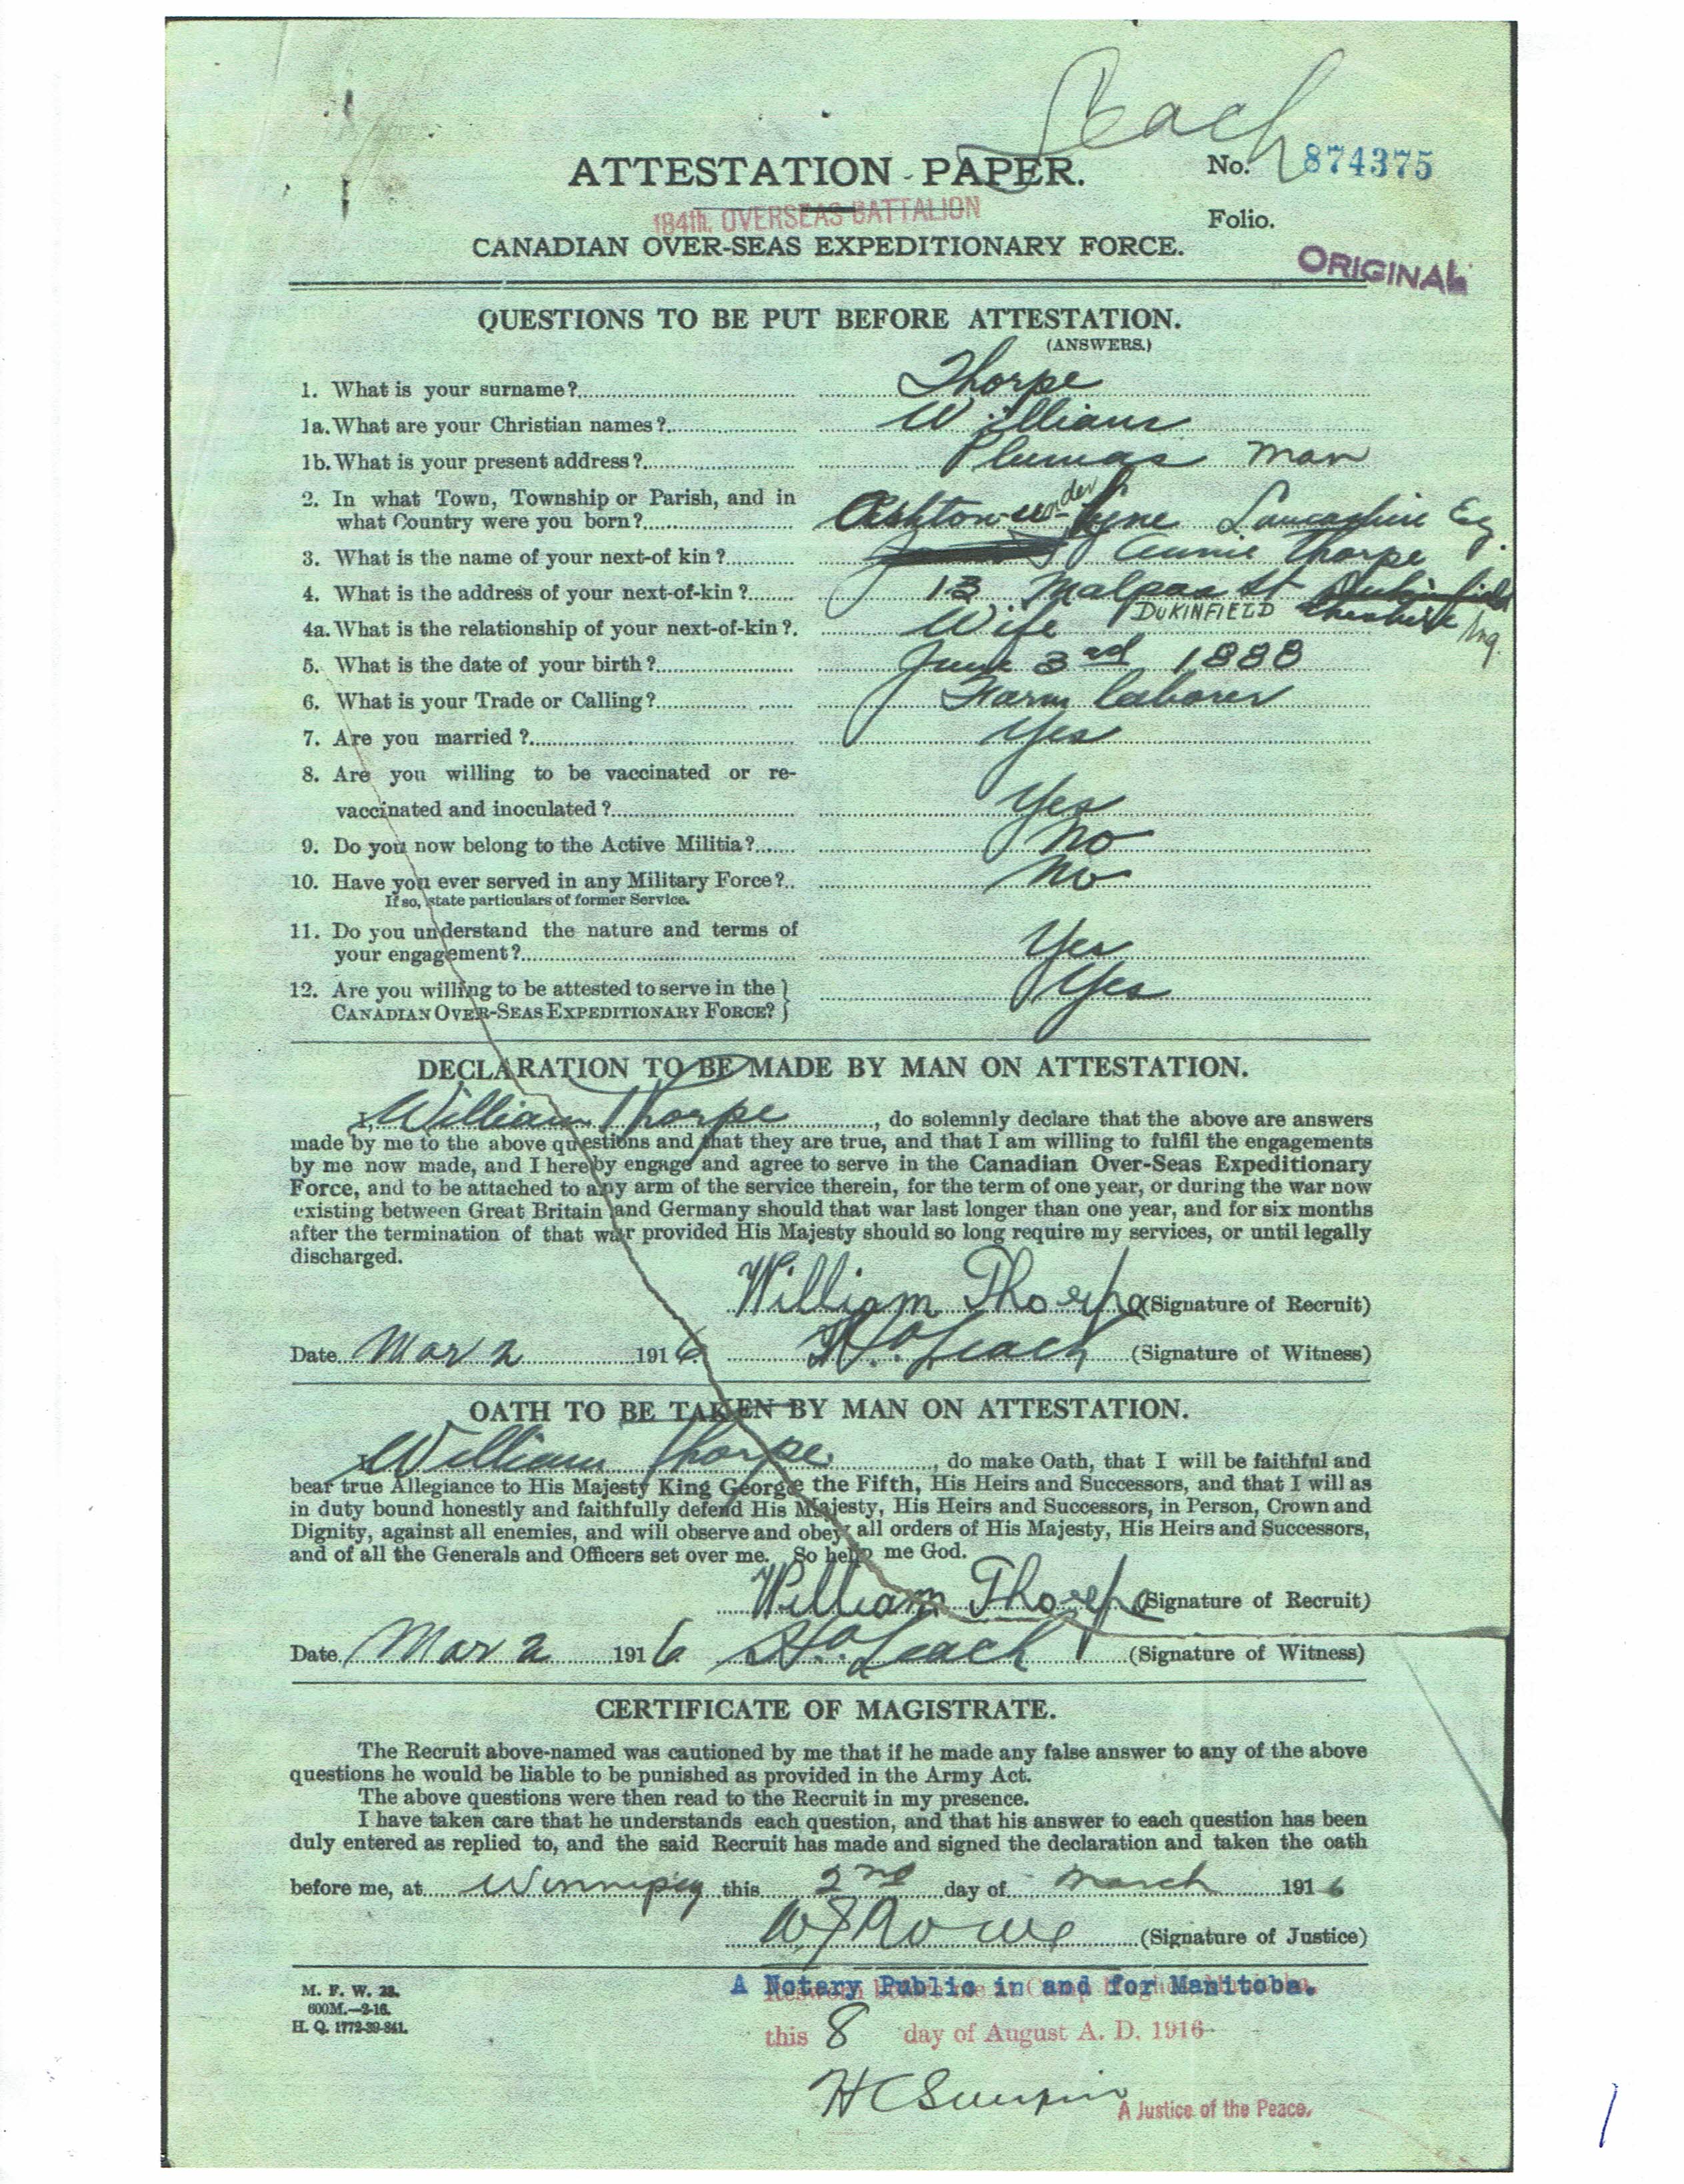 Leach
ATTESTATION PAPER.
No. 874375
184th. OVERSEAS BATTALION
Folio.
CANADIAN OVER-SEAS EXPEDITIONARY FORCE.
ORIGINAL
QUESTIONS TO BE PUT BEFORE ATTESTATION.
(ANSWERS.)
1. What is your surname? Thorpe
1a. What are your Christian names? William
1b. What is your present address? Plumas Man
2. In what Town, Township or Parish, and in
what Country were you born? Ashton-under-Lyne Lancashire Eng.
3. What is the name of your next-of kin? Annie Thorpe
4. What is the address of your next-of-kin? 13 Malpas St Dukinfield
DUKINFIELD Cheshire Eng.
4a. What is the relationship of your next-of-kin? Wife
5. What is the date of your birth? June 3rd 1888
6. What is your Trade or Calling? Farm laborer
7. Are you married? Yes
8. Are you willing to be vaccinated or re-
vaccinated and inoculated? Yes
9. Do you now belong to the Active Militia? No
10. Have you ever served in any Military Force? No
If so, state particulars of former Service.
11. Do you understand the nature and terms of
your engagement? Yes
12. Are you willing to be attested to serve in the
CANADIAN OVER-SEAS EXPEDITIONARY FORCE? Yes
DECLARATION TO BE MADE BY MAN ON ATTESTATION.
I, William Thorpe, do solemnly declare that the above are answers
made by me to the above questions and that they are true, and that I am willing to fulfil the engagements
by me now made, and I hereby engage and agree to serve in the Canadian Over-Seas Expeditionary
Force, and to be attached to any arm of the service therein, for the term of one year, or during the war now
existing between Great Britain and Germany should that war last longer than one year, and for six months
after the termination of that war provided His Majesty should so long require my services, or until legally
discharged.
William Thorpe (Signature of Recruit)
Date Mar 2 1916. H. Leach (Signature of Witness)
OATH TO BE TAKEN BY MAN ON ATTESTATION.
I, William Thorpe, do make Oath, that I will be faithful and
bear true Allegiance to His Majesty King George the Fifth, His Heirs and Successors, and that I will as
in duty bound honestly and faithfully defend His Majesty, His Heirs and Successors, in Person, Crown and
Dignity, against all enemies, and will observe and obey all orders of His Majesty, His Heirs and Successors,
and of all the Generals and Officers set over me. So help me God.
William Thorpe (Signature of Recruit)
Date Mar 2 1916 H. Leach (Signature of Witness)
CERTIFICATE OF MAGISTRATE.
The Recruit above-named was cautioned by me that if he made any false answer to any of the above
questions he would be liable to be punished as provided in the Army Act.
The above questions were then read to the Recruit in my presence.
I have taken care that he understands each question, and that his answer to each question has been
duly entered as replied to, and the said Recruit has made and signed the declaration and taken the oath
before me, at Winnipeg this 2nd day of March 1916
(Signature of Justice)
A Notary Public in and for Manitoba.
M. F. W. 23.
600M.—2-16.
H. Q. 1772-39-841.
this 8 day of August A. D. 1916
A Justice of the Peace.
1